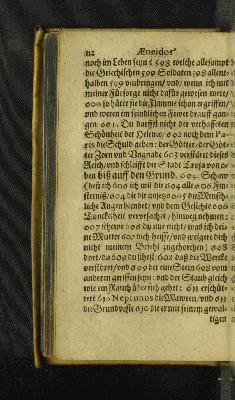 112 Æneidos
noch im Leben seyn: 598 welche allesampt
die Griechischen 599 Soldaten 598 allent-
halben 599 umbringen/ und/ wenn ich mit
meiner Fürsorge nicht dafür gewesen were/
600 so hätte sie die Flamme schon ergriffen/
und weren im feindlichen Fewer drauff gan-
gen. 601 Du darffst nicht der verhaßten
Schönheit der Helenæ/ 602 noch dem Pa-
ris die Schuld geben: der Götter/ der Göt-
ter Zorn und Ungnade 603 verstöret dieses
Reich/ und schleifft die Stadt Troja von o-
ben biß auff den Grund. 604. Schaw
(denn ich 606 ich wil die 604 alle 606 Fin-
sterniß/ 604 die dir anjetzo 605 die Mensch-
liche Augen blendet/ und dem Gesichte 606
Dunckelheit verursachet/ hinweg nehmen:
607 schewe du nur nicht/ was ich dei-
ne Mutter 607 dich heisse/ und weigere dich
nicht meinem Befehl zugehorchen) 608
dort/ da 609 du sihest/ 608 daß die Wercke
verstöret/ und 609 der eine Stein 608 vom
anderen gerissen seyn: und der Staub gleich
wie ein Rauch übersich gehet: 611 erschüt-
tert 610 Neptunus die Mawren/ und 611
die Grundveste 610 die er mit seinem gewal-
tigen